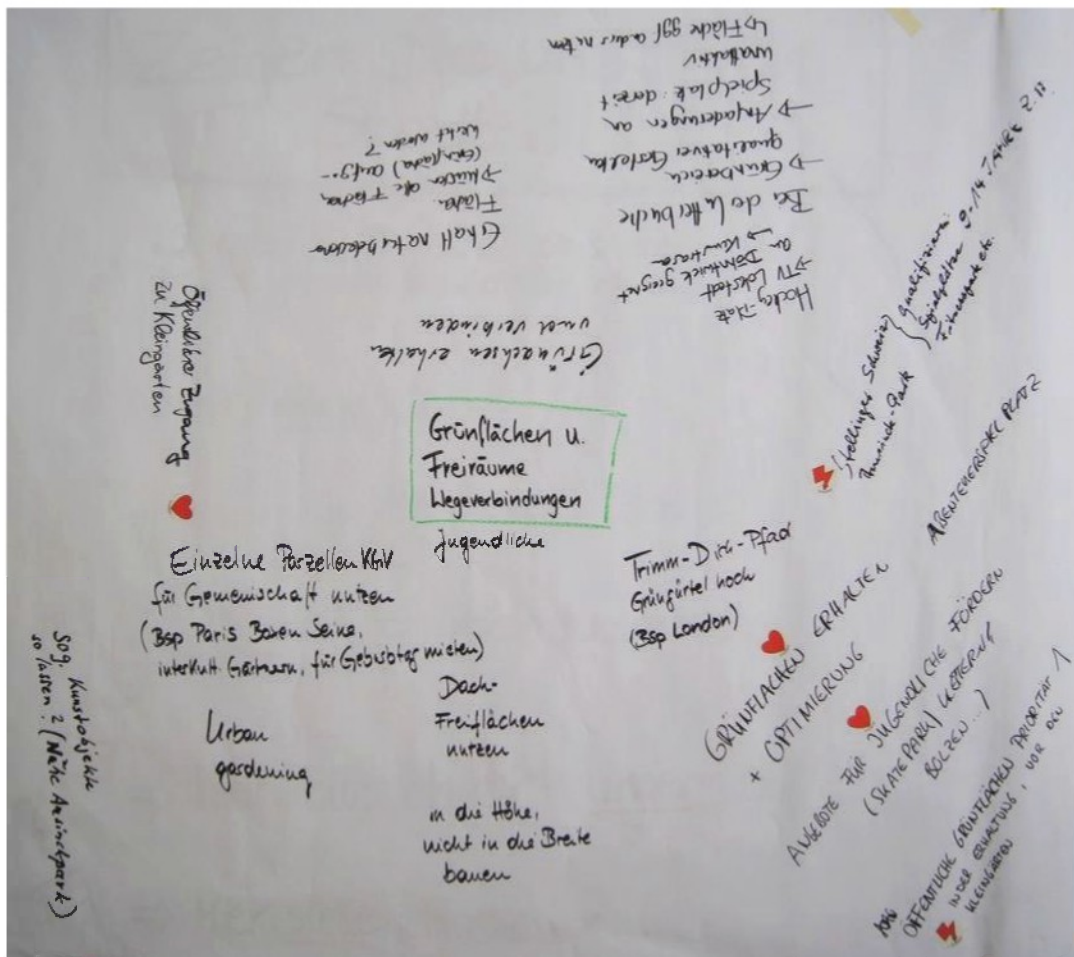 Grünflächen u.
Freiräume
Wegeverbindungen
Jugendliche
Grünachsen erhalten
und verbinden
Erhalt naturbelassene
Flächen
(Grünfläche) aufge-
wertet werden?
Hockey-Platz
→ TV Lokstedt
an Döhrntwiek geeignet
→ Kunstrasen
Bei der Lutterbuche
→ Grünbereich
qualitativer gestalten
→ Anforderungen an
Spielplatz: derzeit
unattraktiv
↳ Fläche ggf anders nutzen
Öffentlicher Zugang
zu Kleingärten
Einzelne Parzellen KGV
für Gemeinschaft nutzen
(Bsp Paris Boxen Seine,
interkult. Gärtnern, für Geburtstag mieten)
Urban
gardening
Dach-
Freiflächen
nutzen
in die Höhe,
nicht in die Breite
bauen
Sog. Kunstobjekte
so lassen? (Nähe Amsinckpark)
Trimm-Dich-Pfad
Grüngürtel hoch
(Bsp London)
Stellinger Schweiz
Amsinck-Park
qualifizieren:
Spielplätze 9-14 JAHRE z.B.
Fitnessgeräte etc.
ABENTEUERSPIELPLATZ
GRÜNFLÄCHEN ERHALTEN
+ OPTIMIERUNG
ANGEBOTE FÜR JUGENDLICHE FÖRDERN
(SKATEPARK, KLETTERN,
BOLZEN...)
ÖFFENTLICHE GRÜNFLÄCHEN PRIORITÄT 1
IN DER ERHALTUNG, VOR DEN
KLEINGÄRTEN